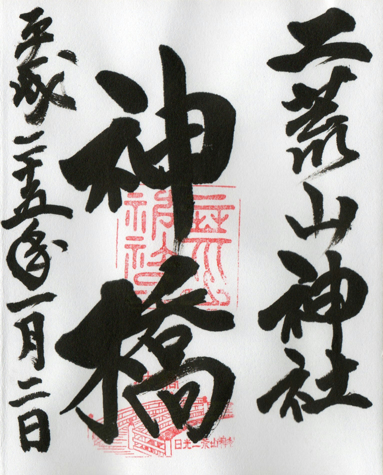 二荒山神社
神橋
平成二十五年一月二日
二荒山神社
日光二荒山神社